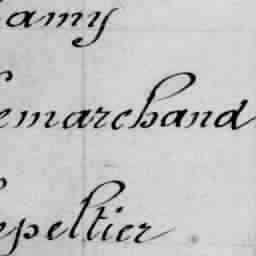 Lamy
Lemarchand
Lepeltier